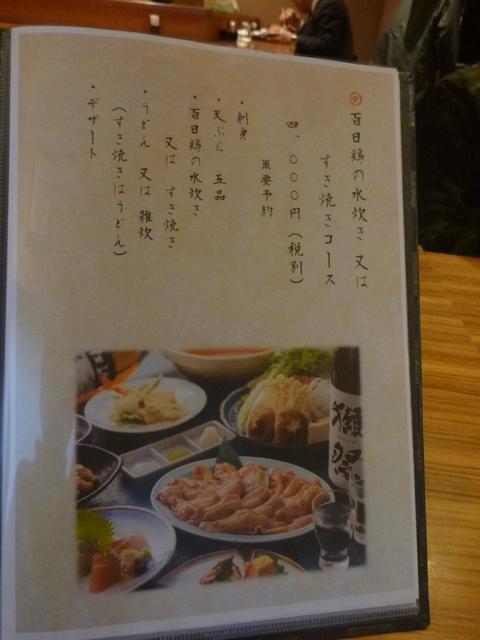 ◎ 百日鶏の水炊き 又は
すき焼きコース
四、〇〇〇円(税別)
※要予約
・刺身
・天ぷら 五品
・百日鶏の水炊き
又は すき焼き
・うどん 又は 雑炊
(すき焼きはうどん)
・デザート
獺祭